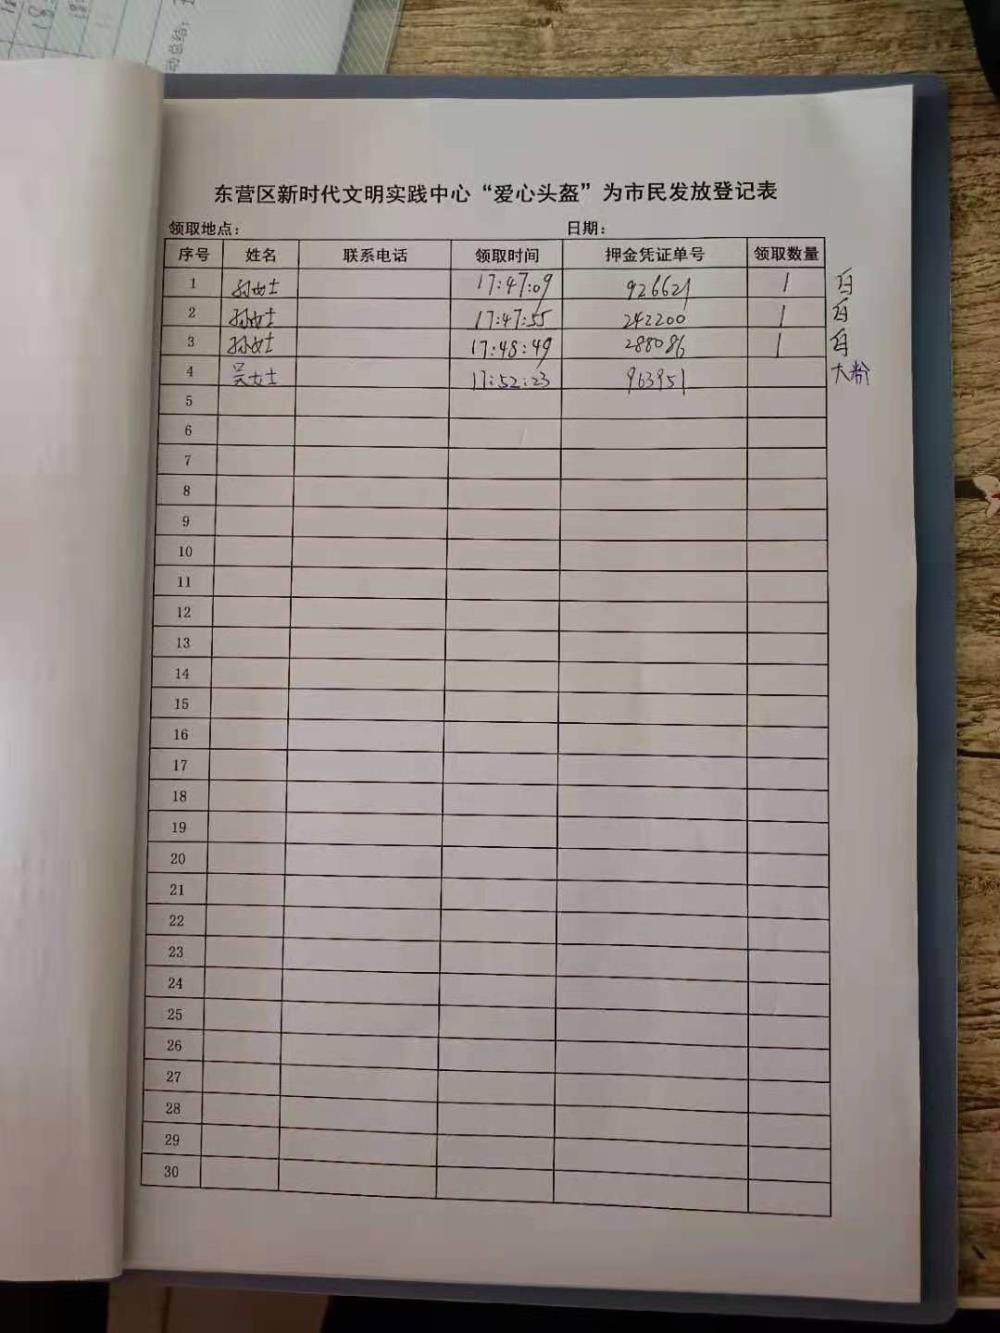 东营区新时代文明实践中心“爱心头盔”为市民发放登记表
领取地点： 日期：
序号 姓名 联系电话 领取时间 押金凭证单号 领取数量
1 孙女士 17:47:09 926621 1 白
2 孙女士 17:47:55 242200 1 白
3 孙女士 17:48:49 288086 1 白
4 吴女士 17:52:23 963951 大粉
5
6
7
8
9
10
11
12
13
14
15
16
17
18
19
20
21
22
23
24
25
26
27
28
29
30